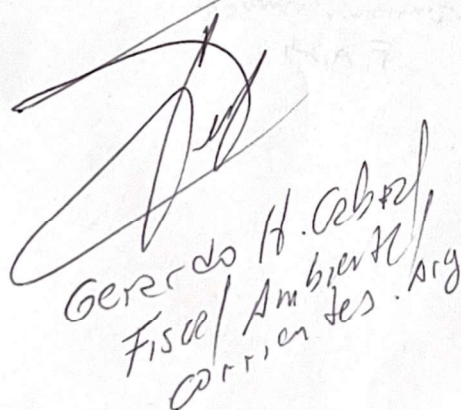 Gerardo H. Cabral
Fiscal Ambiental
Corrientes. Arg